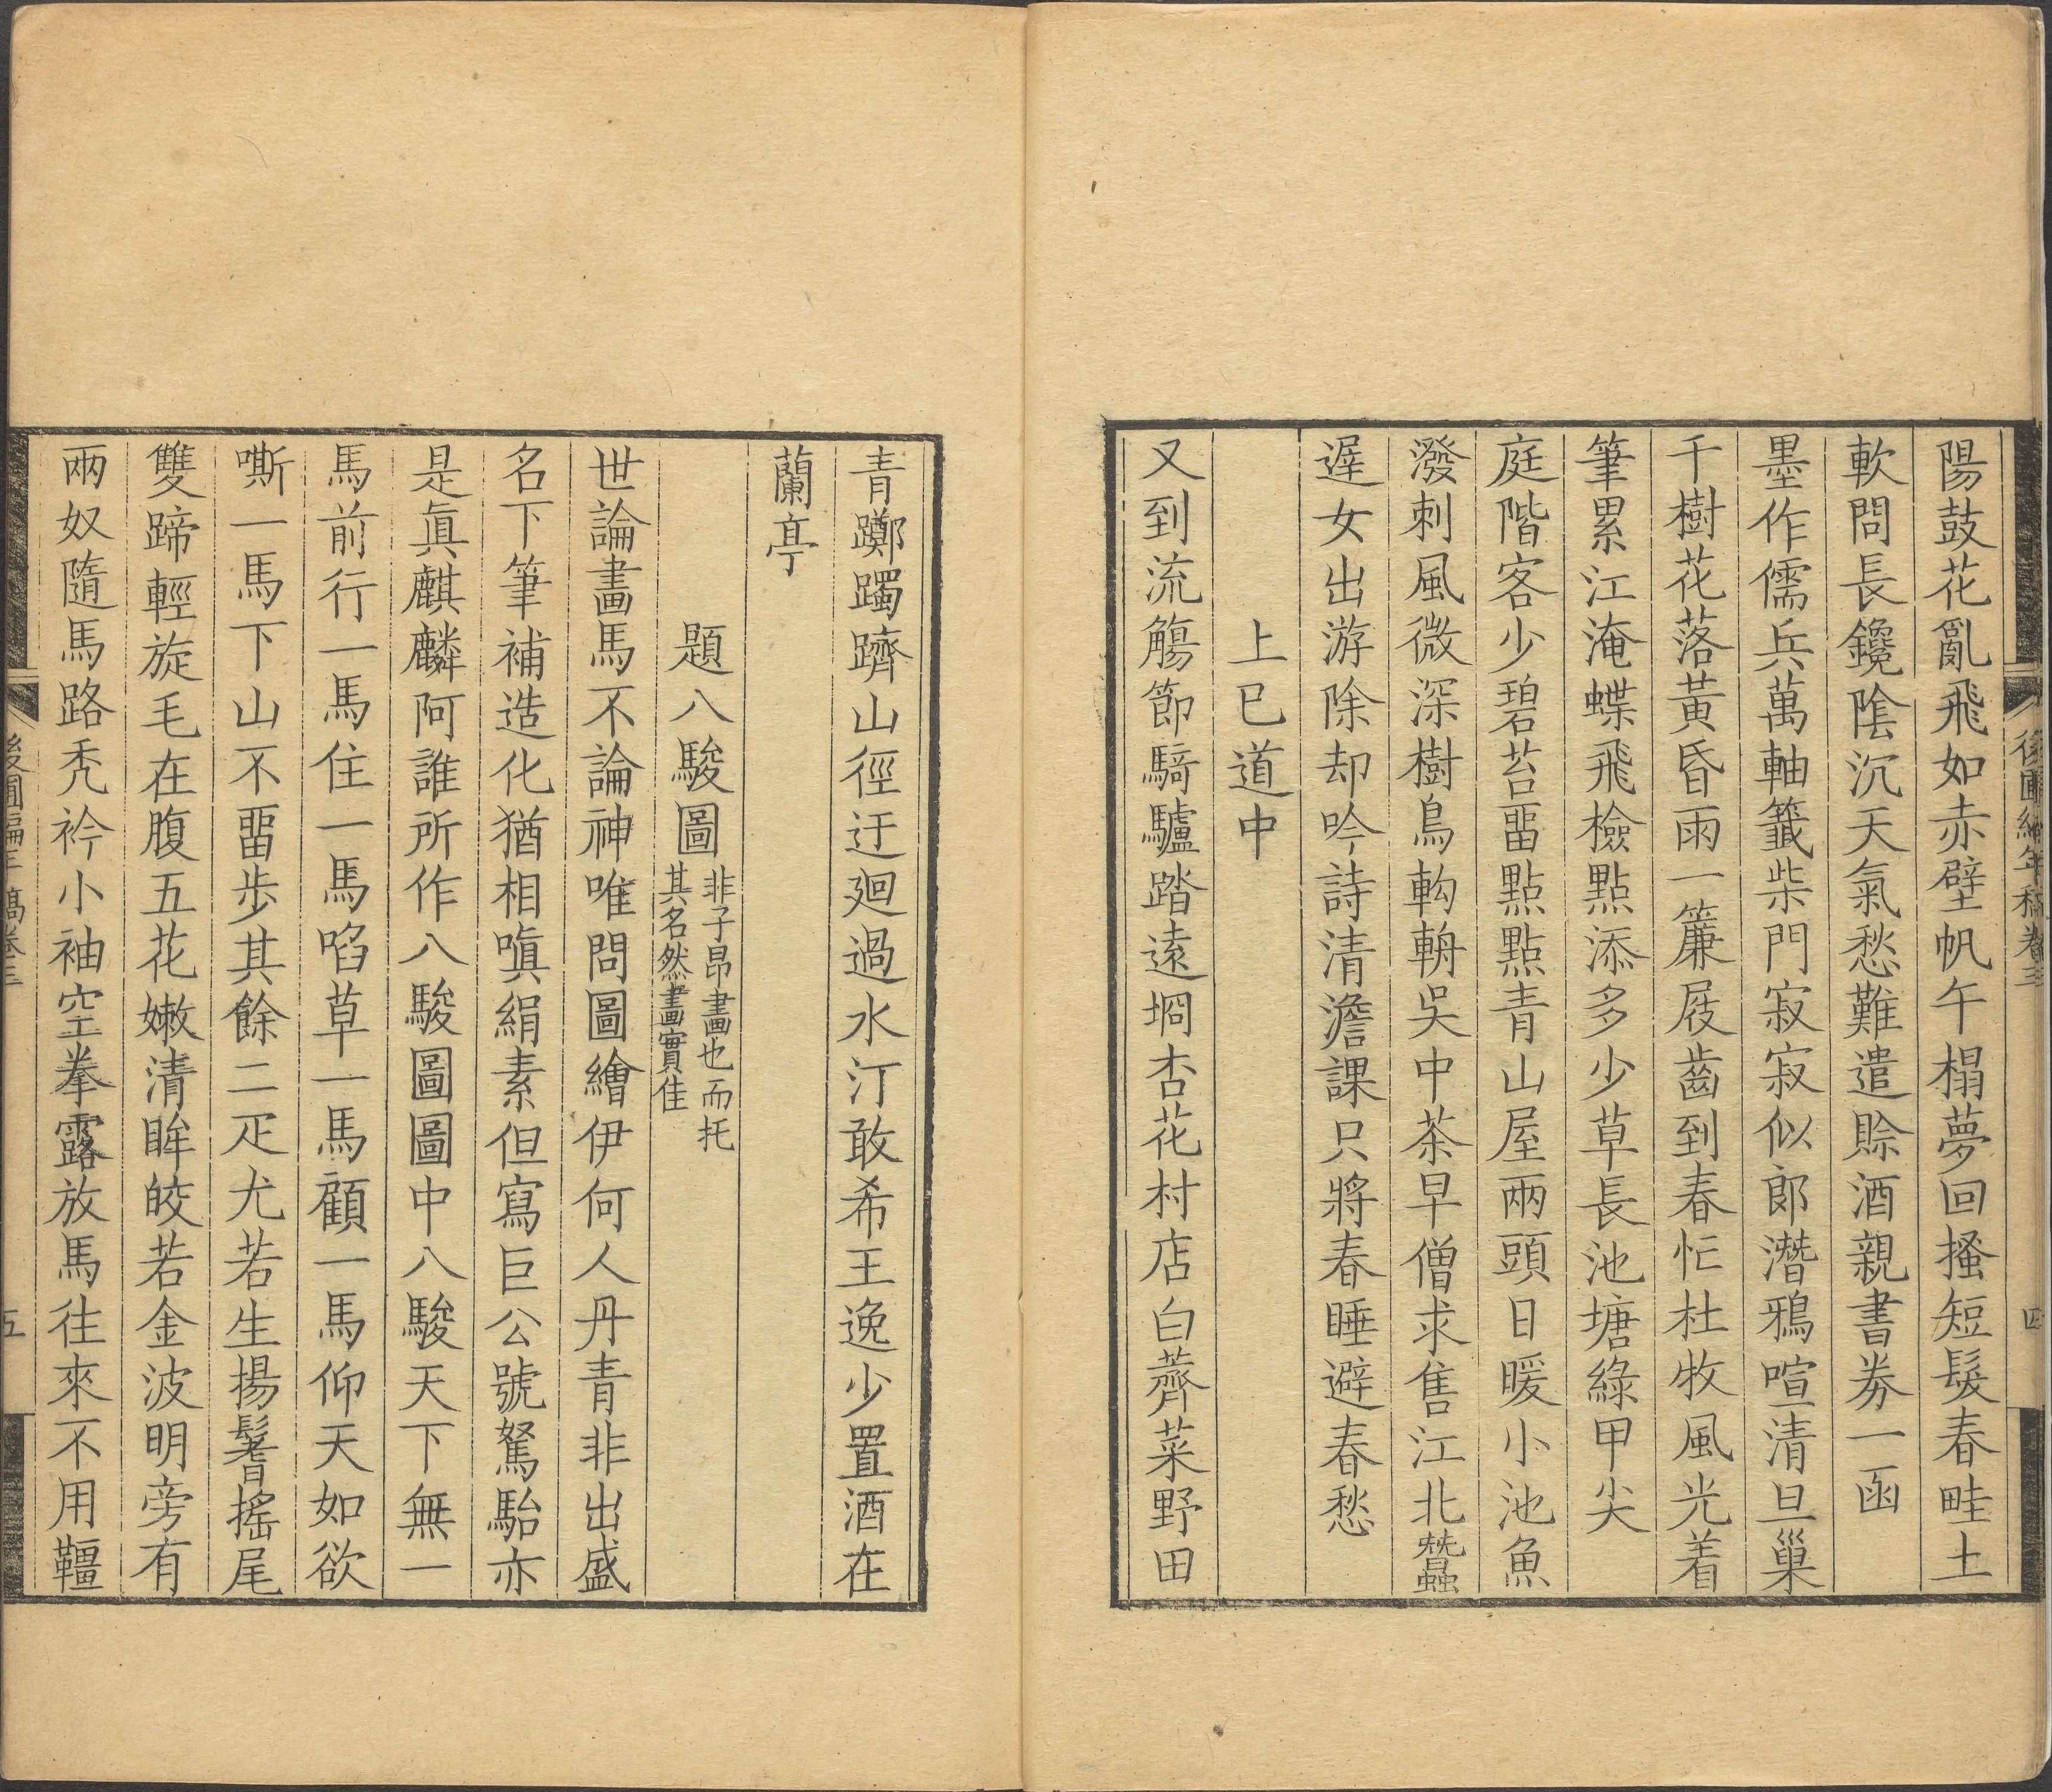 陽鼓花亂飛如赤壁帆午榻夢回搔短髮春畦土
軟問長鑱陰沉天氣愁難遣賒酒親書券一函
墨作儒兵萬軸籤柴門寂寂似郎潛鴉喧清旦巢
千樹花落黃昏雨一簾屐齒到春忙杜牧風光着
筆累江淹蝶飛檢點添多少草長池塘綠甲尖
庭階客少碧苔畱點點青山屋兩頭日暖小池魚
潑刺風微深樹鳥軥輈吳中茶早僧求售江北蠶
遲女出游除却吟詩清澹課只將春睡避春愁
上巳道中
又到流觴節騎驢踏遠坰杏花村店白薺菜野田
後圃編年稿卷三
四
青躑躅躋山徑迂廻過水汀敢希王逸少置酒在
蘭亭
題八駿圖非子昂畫也而托
其名然畫實佳
世論畫馬不論神唯問圖繪伊何人丹青非出盛
名下筆補造化猶相嗔絹素但寫巨公號駑駘亦
是眞麒麟阿誰所作八駿圖圖中八駿天下無一
馬前行一馬住一馬啗草一馬顧一馬仰天如欲
嘶一馬下山不畱步其餘二疋尤若生揚鬐搖尾
雙蹄輕旋毛在腹五花嫩清眸皎若金波明旁有
兩奴隨馬路秃衿小袖空拳露放馬往來不用韁
後圃編年稿卷三
五